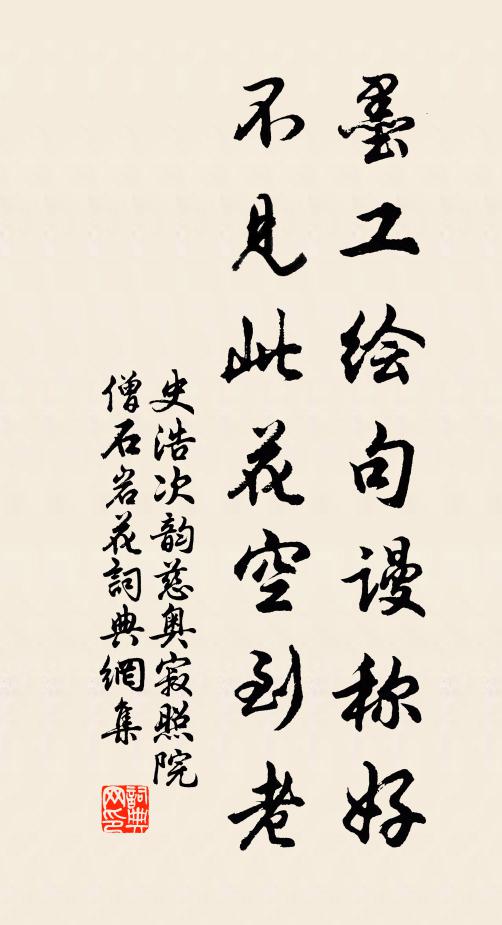 墨工绘句谩称好
不见此花空到老
史浩次韵慈奥寂照院
僧石岩花詞典網集
詞典
网印